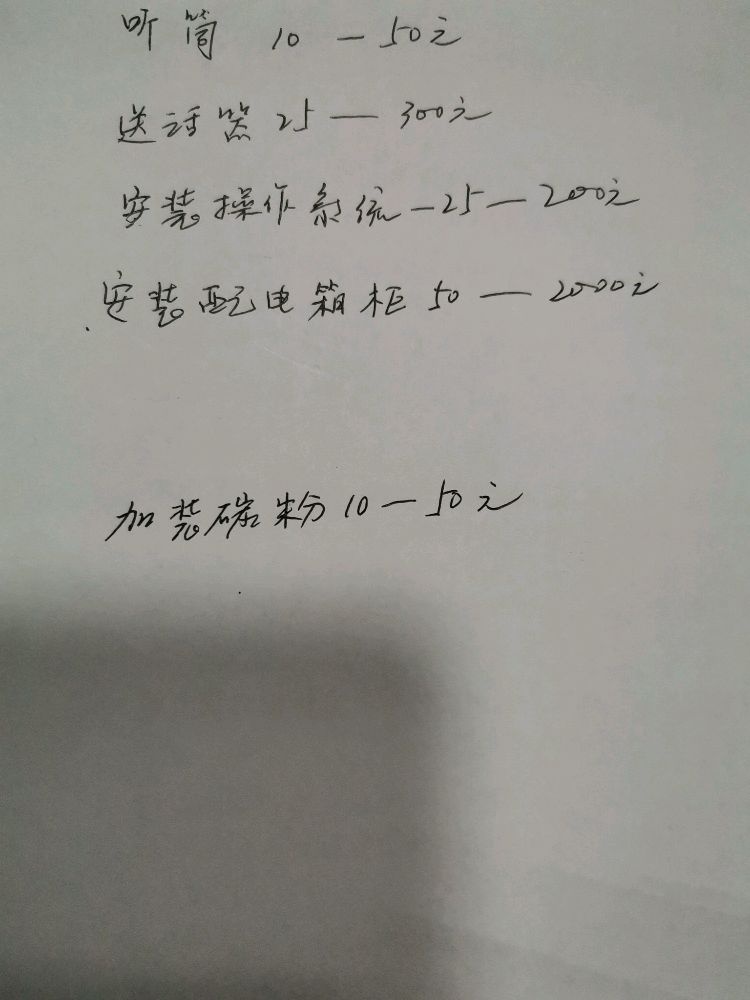 听筒 10 — 50元
送话器 25 — 300元
安装操作系统 — 25 — 200元
安装配电箱柜 50 — 2000元
加装碳粉 10 — 50元